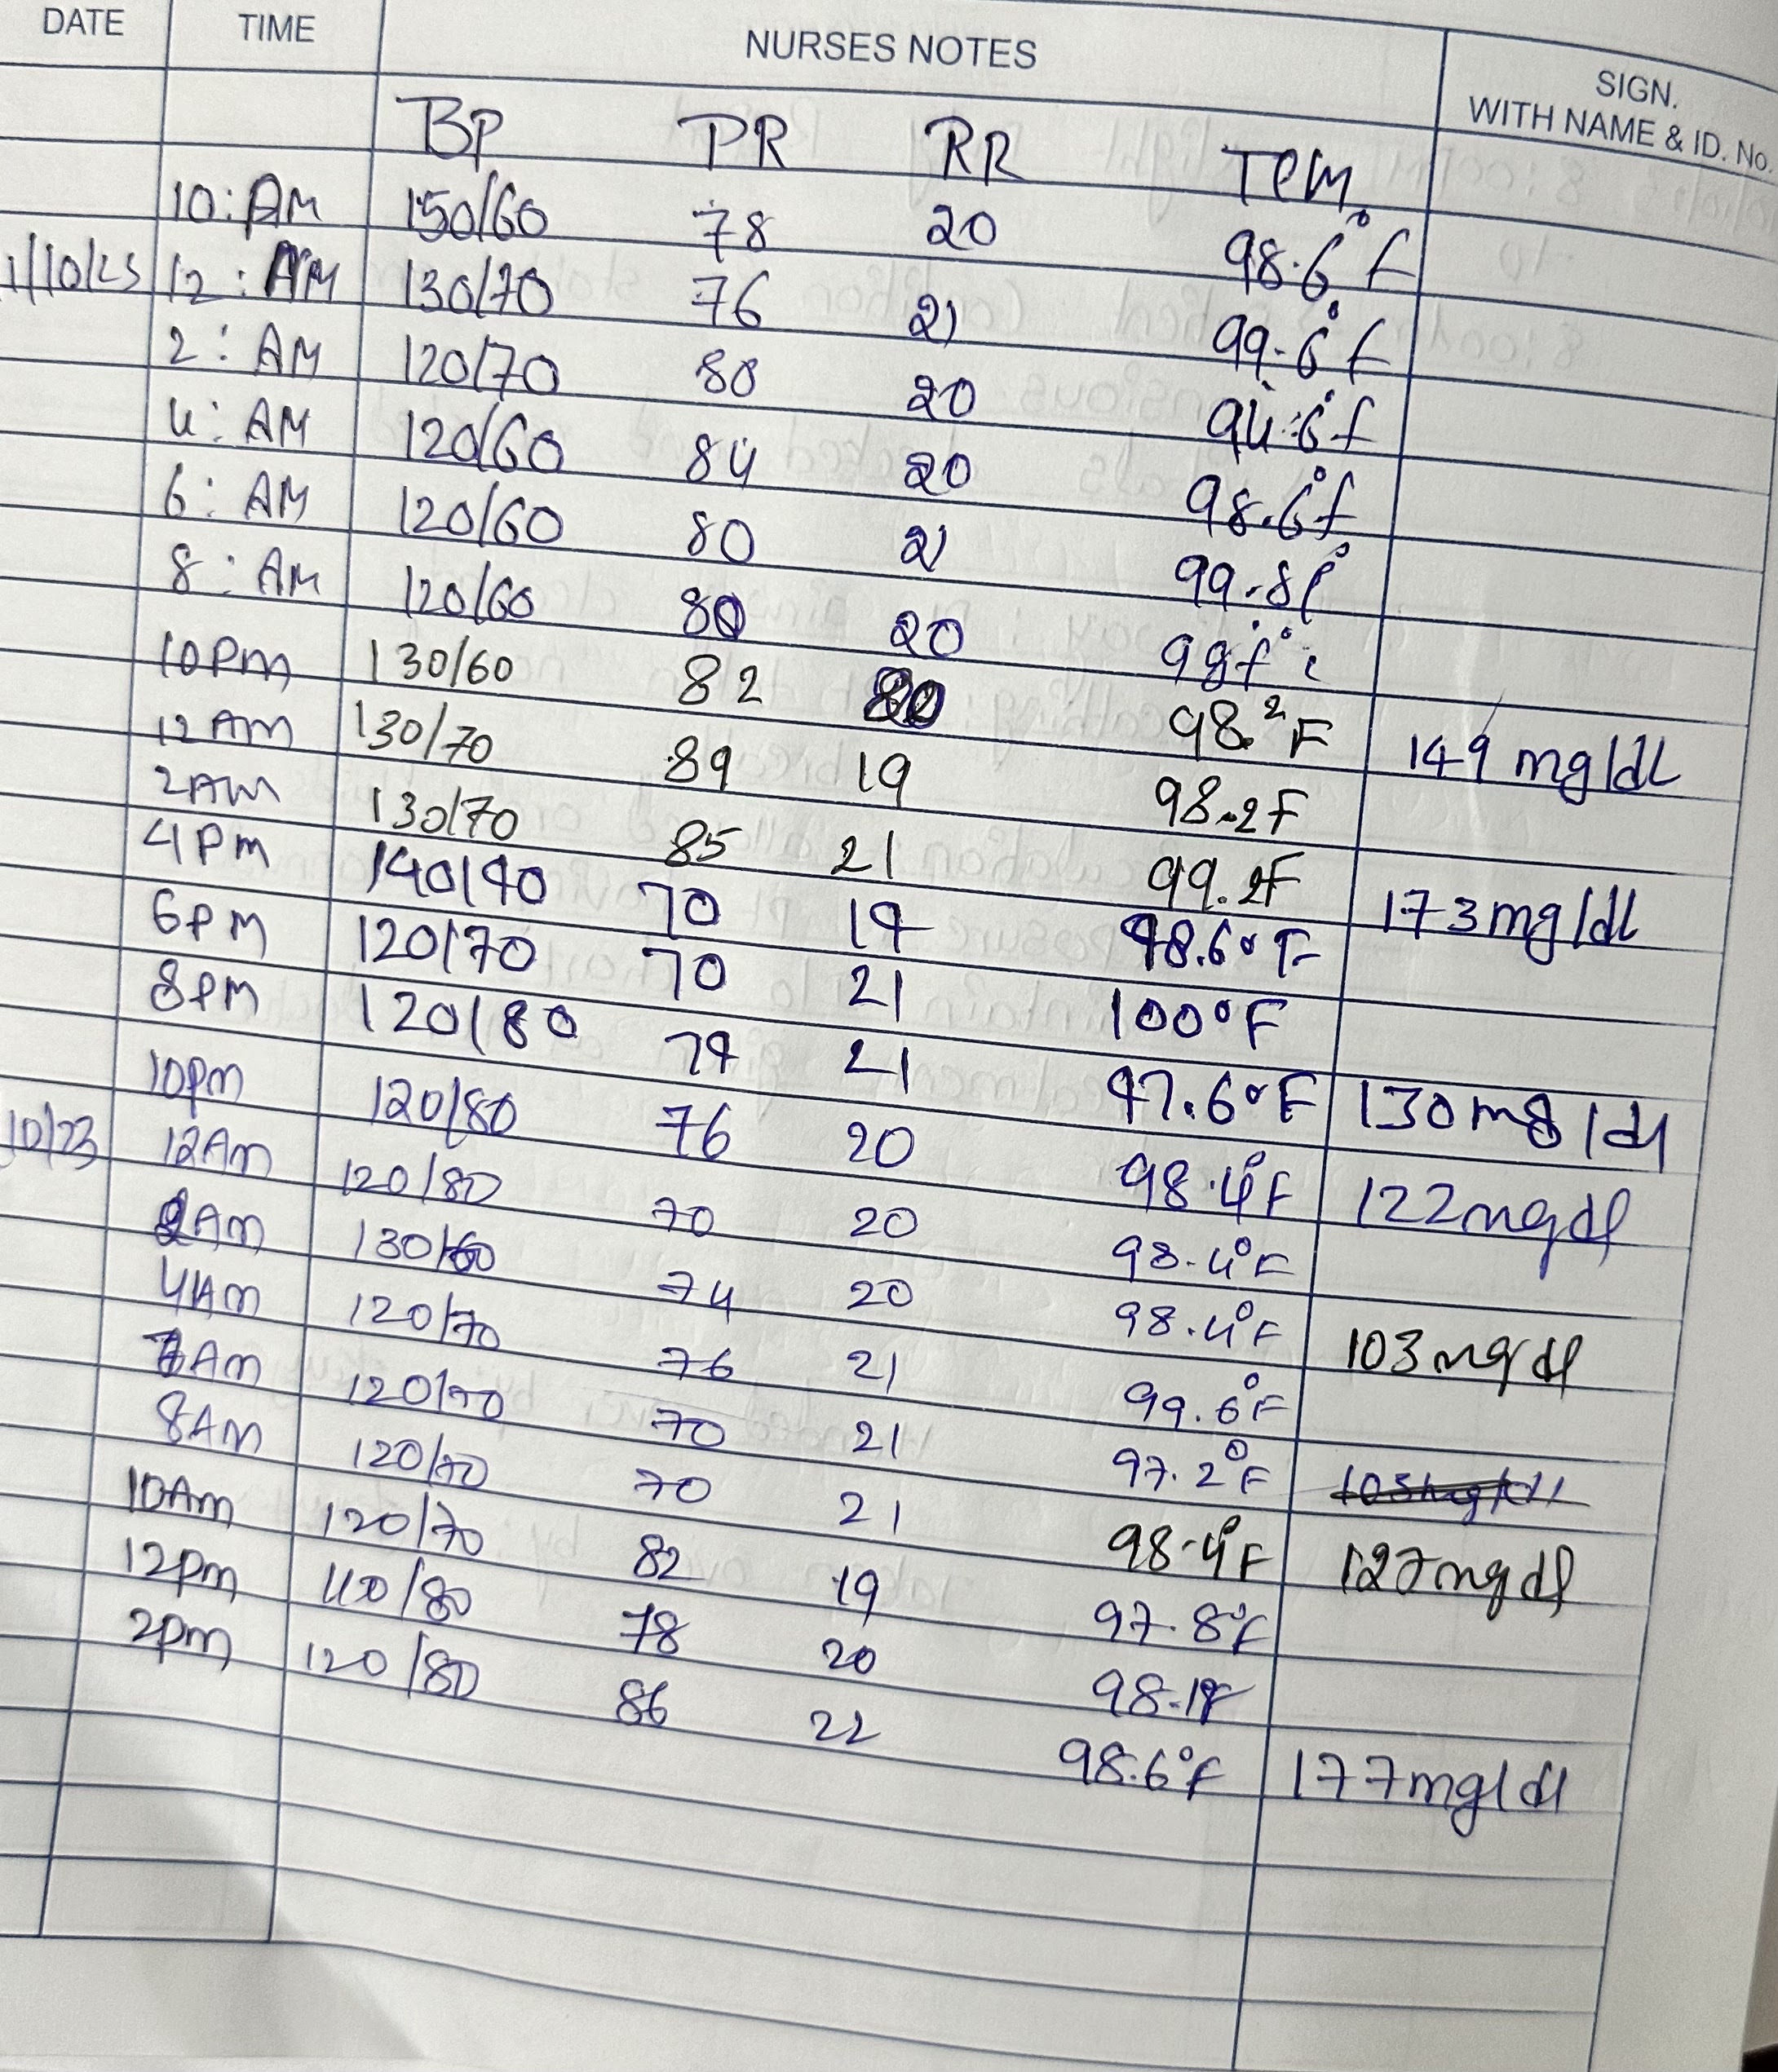 DATE TIME NURSES NOTES SIGN. WITH NAME & ID. No.
BP PR RR Tem
10:AM 150/60 78 20 98.6°f
1/10/23 12:AM 130/70 76 21 99.6°f
2:AM 120/70 80 20 94.6°f
4:AM 120/60 84 20 98.6°f
6:AM 120/60 80 21 99.8f°
8:AM 120/60 80 20
10Pm 130/60 82 98.2F 149 mg/dL
12AM 130/70 89 19 98.2F
2AM 130/70 85 21 99.2F 173mg/dl
4PM 140/90 70 19 98.6°F
6PM 120/70 70 21 100°F
8PM 120/80 79 21 97.6°F 130mg/dl
10pm 120/80 76 20 98.4°F 122mgdl
10/23 12Am 120/80 70 20 98.4°F
2AM 130/60 74 20 98.4°F 103mgdl
4Am 120/70 76 21 99.6°F
AM 120/70 70 21 97.2°F
8AM 120/70 70 21 98.4°F 127mgdl
10Am 120/70 82 19 97.8°F
12pm 110/80 78 20
2pm 120/80 86 22 98.6°F 177mg/dl